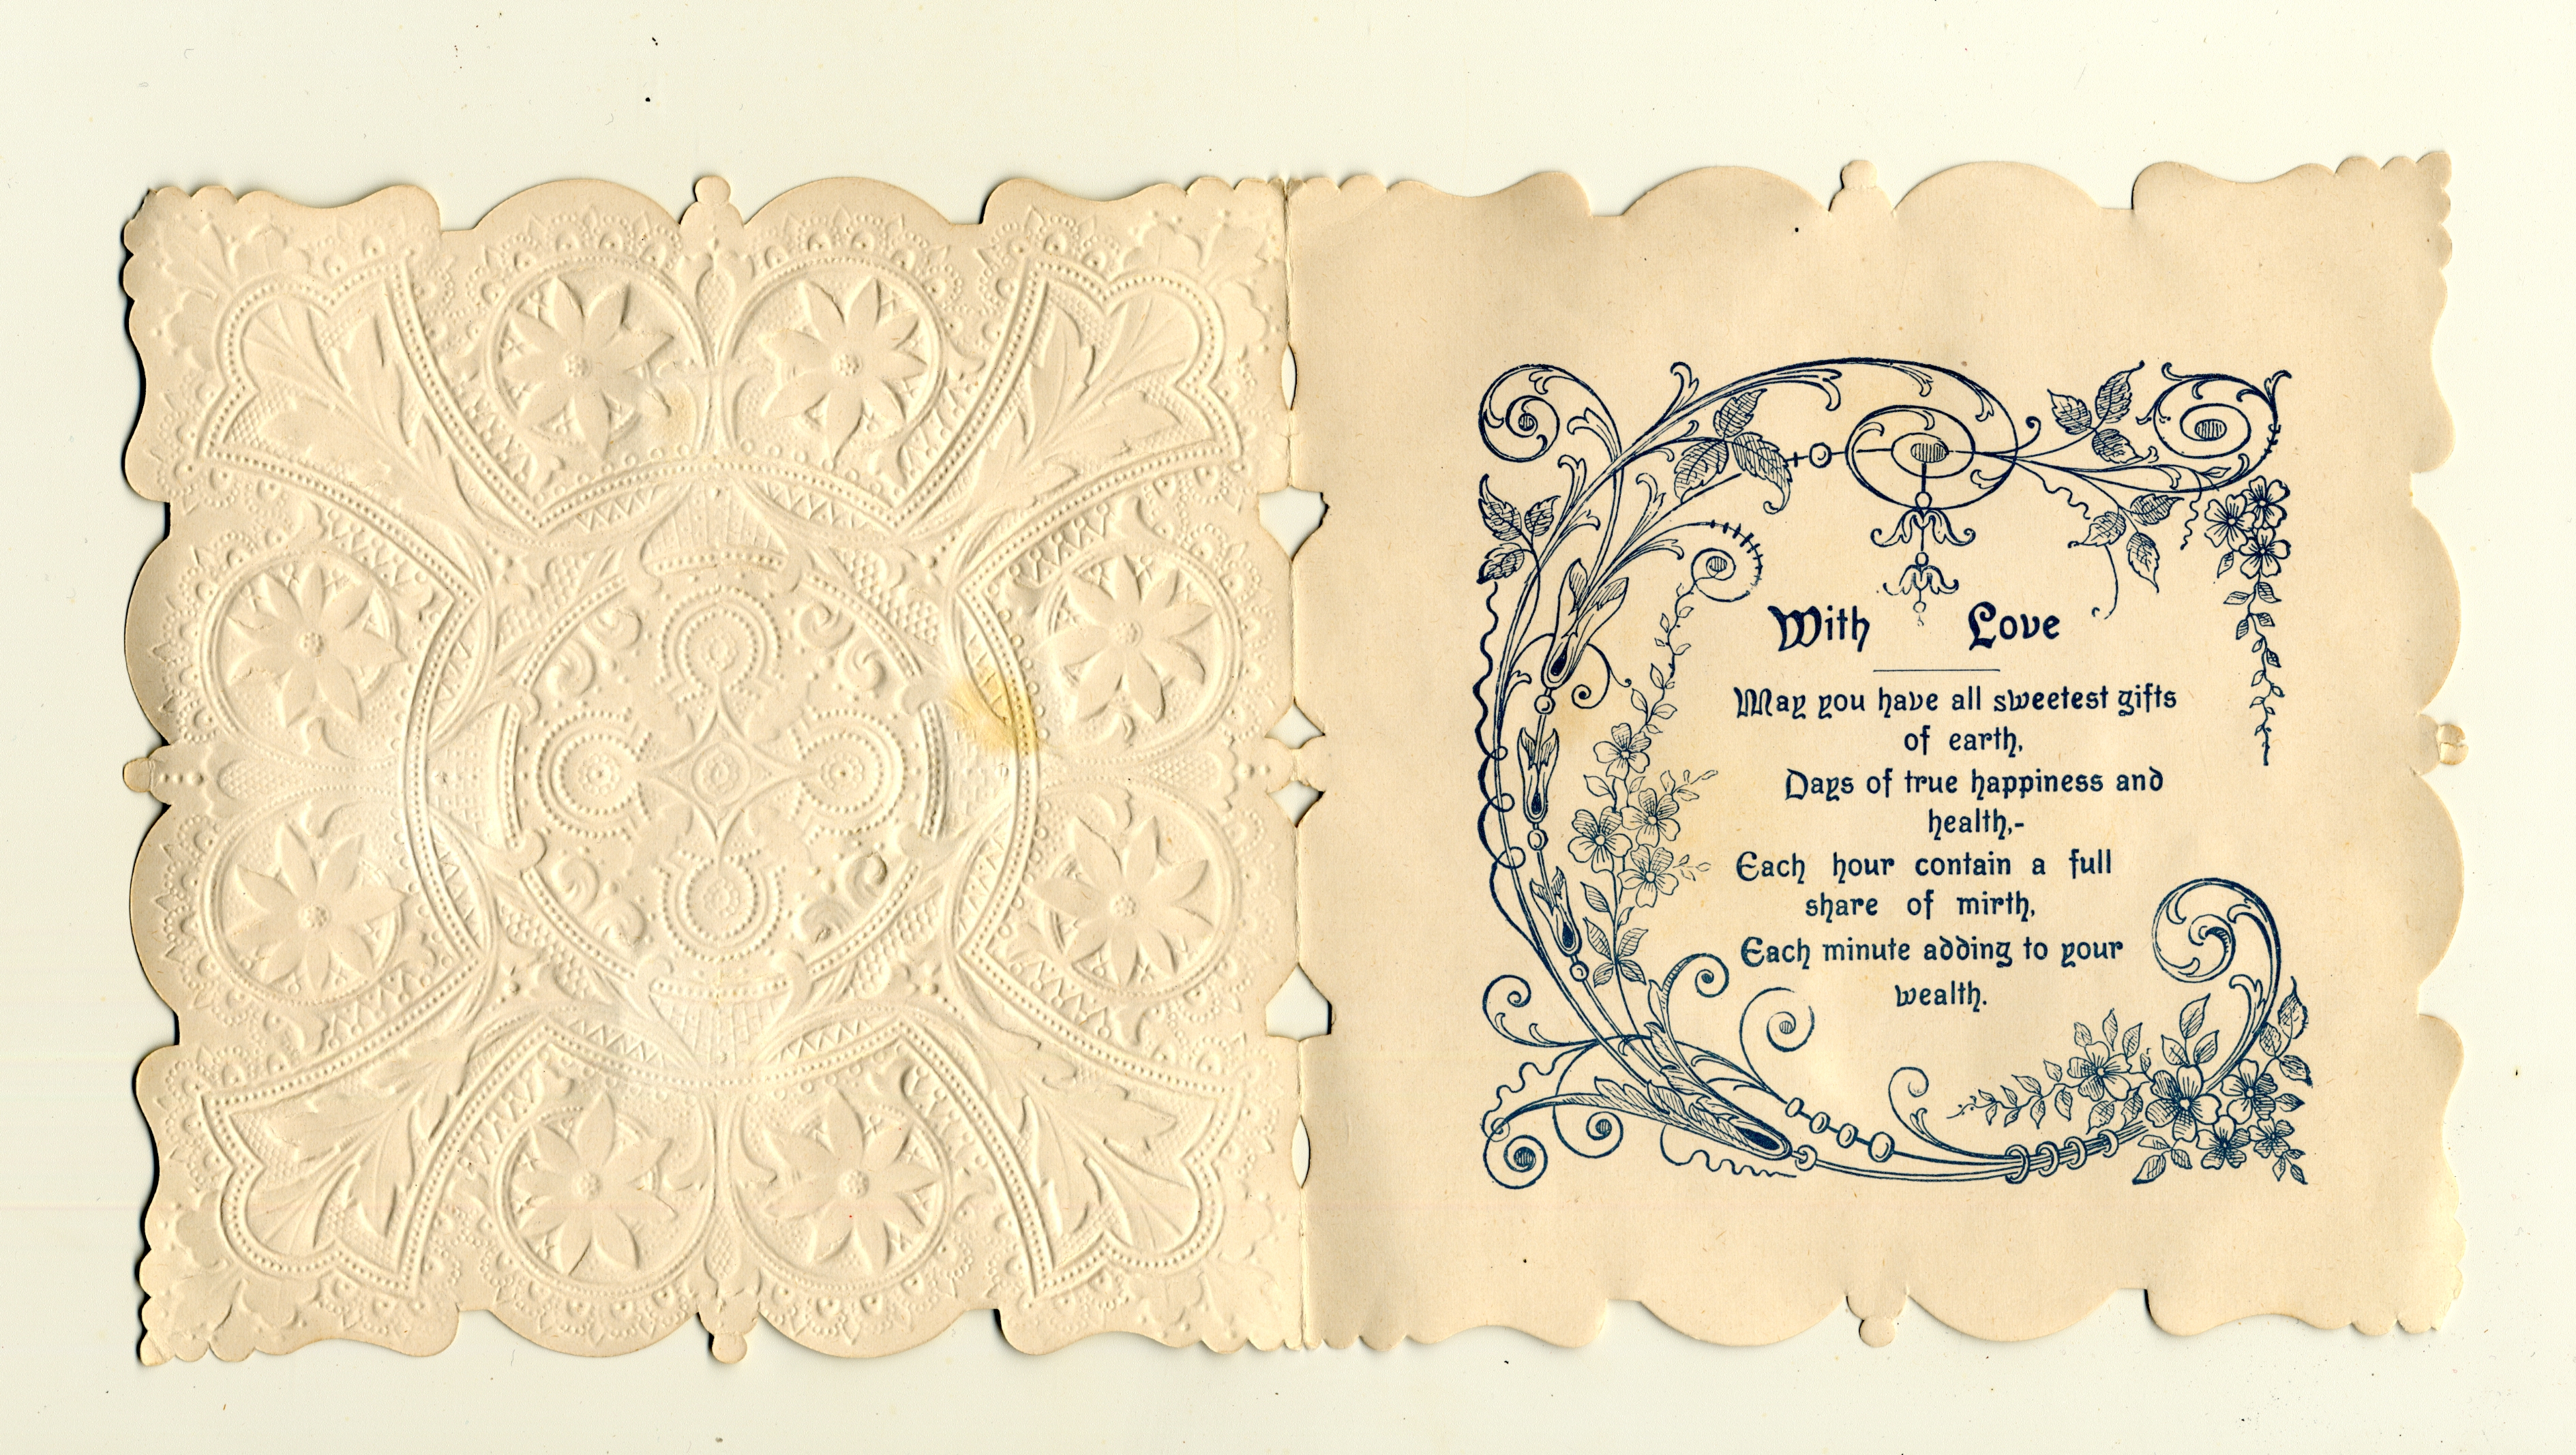 With Love
May you have all sweetest gifts
of earth,
Days of true happiness and
health,-
Each hour contain a full
share of mirth,
Each minute adding to your
wealth.